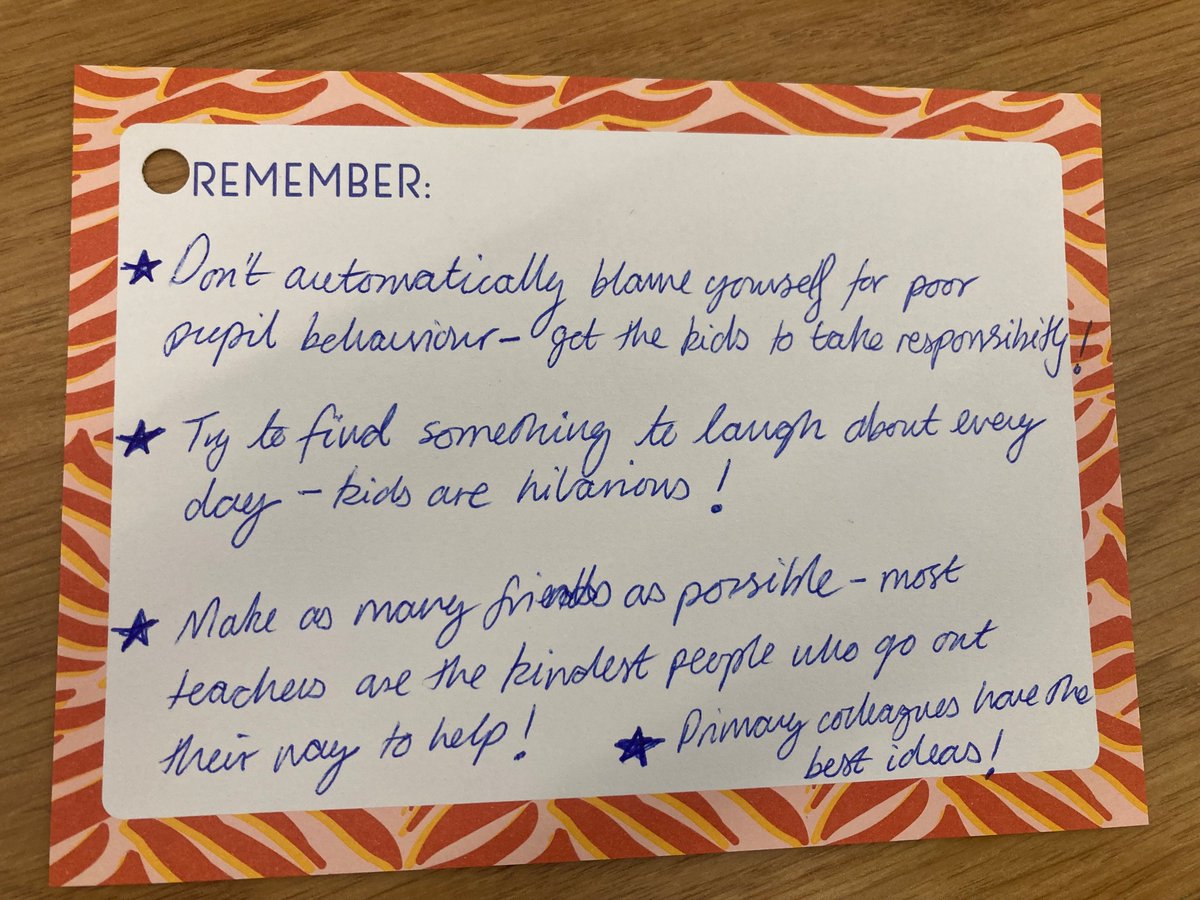 REMEMBER:
★ Don't automatically blame yourself for poor
pupil behaviour - get the kids to take responsibility!
★ Try to find something to laugh about every
day - kids are hilarious!
★ Make as many friends as possible - most
teachers are the kindest people who go out
their way to help!
★ Primary colleagues have the
best ideas!